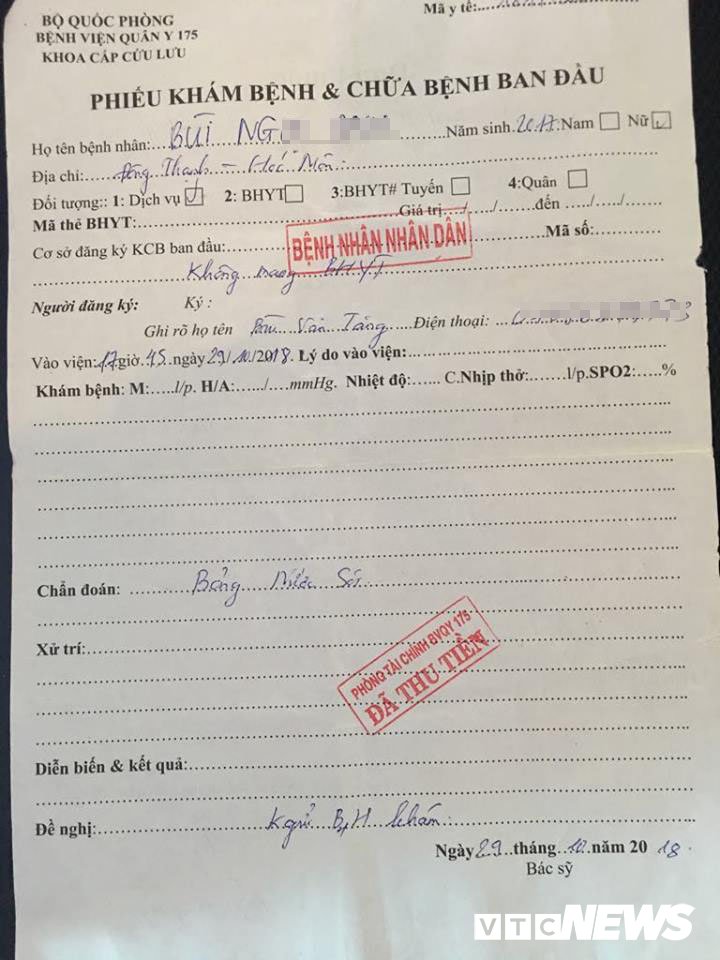 BỘ QUỐC PHÒNG
BỆNH VIỆN QUÂN Y 175
KHOA CẤP CỨU LƯU
Mã y tế:
PHIẾU KHÁM BỆNH & CHỮA BỆNH BAN ĐẦU
Họ tên bệnh nhân: BÙI NG Năm sinh 2017 Nam Nữ
Địa chỉ: Đông Thạnh – Hóc Môn
Đối tượng:: 1: Dịch vụ 2: BHYT 3:BHYT# Tuyến 4:Quân
Mã thẻ BHYT: Giá trị ...../...../...... đến ...../...../.....
Cơ sở đăng ký KCB ban đầu: Mã số:
BỆNH NHÂN NHÂN DÂN
Không mang BHYT
Người đăng ký: Ký :
Ghi rõ họ tên Văn Tảng Điện thoại:
Vào viện: 17 giờ 45 ngày 29/10/2018. Lý do vào viện:
Khám bệnh: M:.....l/p. H/A:....../.....mmHg. Nhiệt độ:...... C.Nhịp thở:.......l/p.SPO2:.....%
Chẩn đoán: Bỏng Nước Sôi
Xử trí:
PHÒNG TÀI CHÍNH BVQY 175
ĐÃ THU TIỀN
Diễn biến & kết quả:
Đề nghị: khám
Ngày 29 tháng 10 năm 20 18
Bác sỹ
VTC NEWS